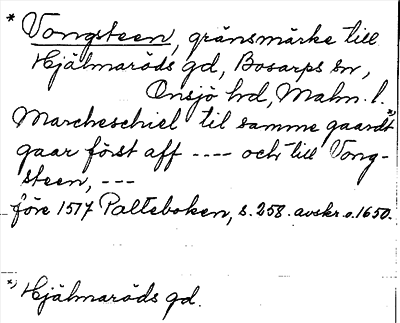 * Vongsteen, gränsmärke till
Hjälmaröds gd, Bosarps sn,
Onsjö hd, Malm. l.
Marcheschiel til samme gaardt *)
gaar först aff ---- och till Vong-
steen, ---
före 1517 Palteboken, s. 258. avskr. o. 1650.
*) Hjälmaröds gd.